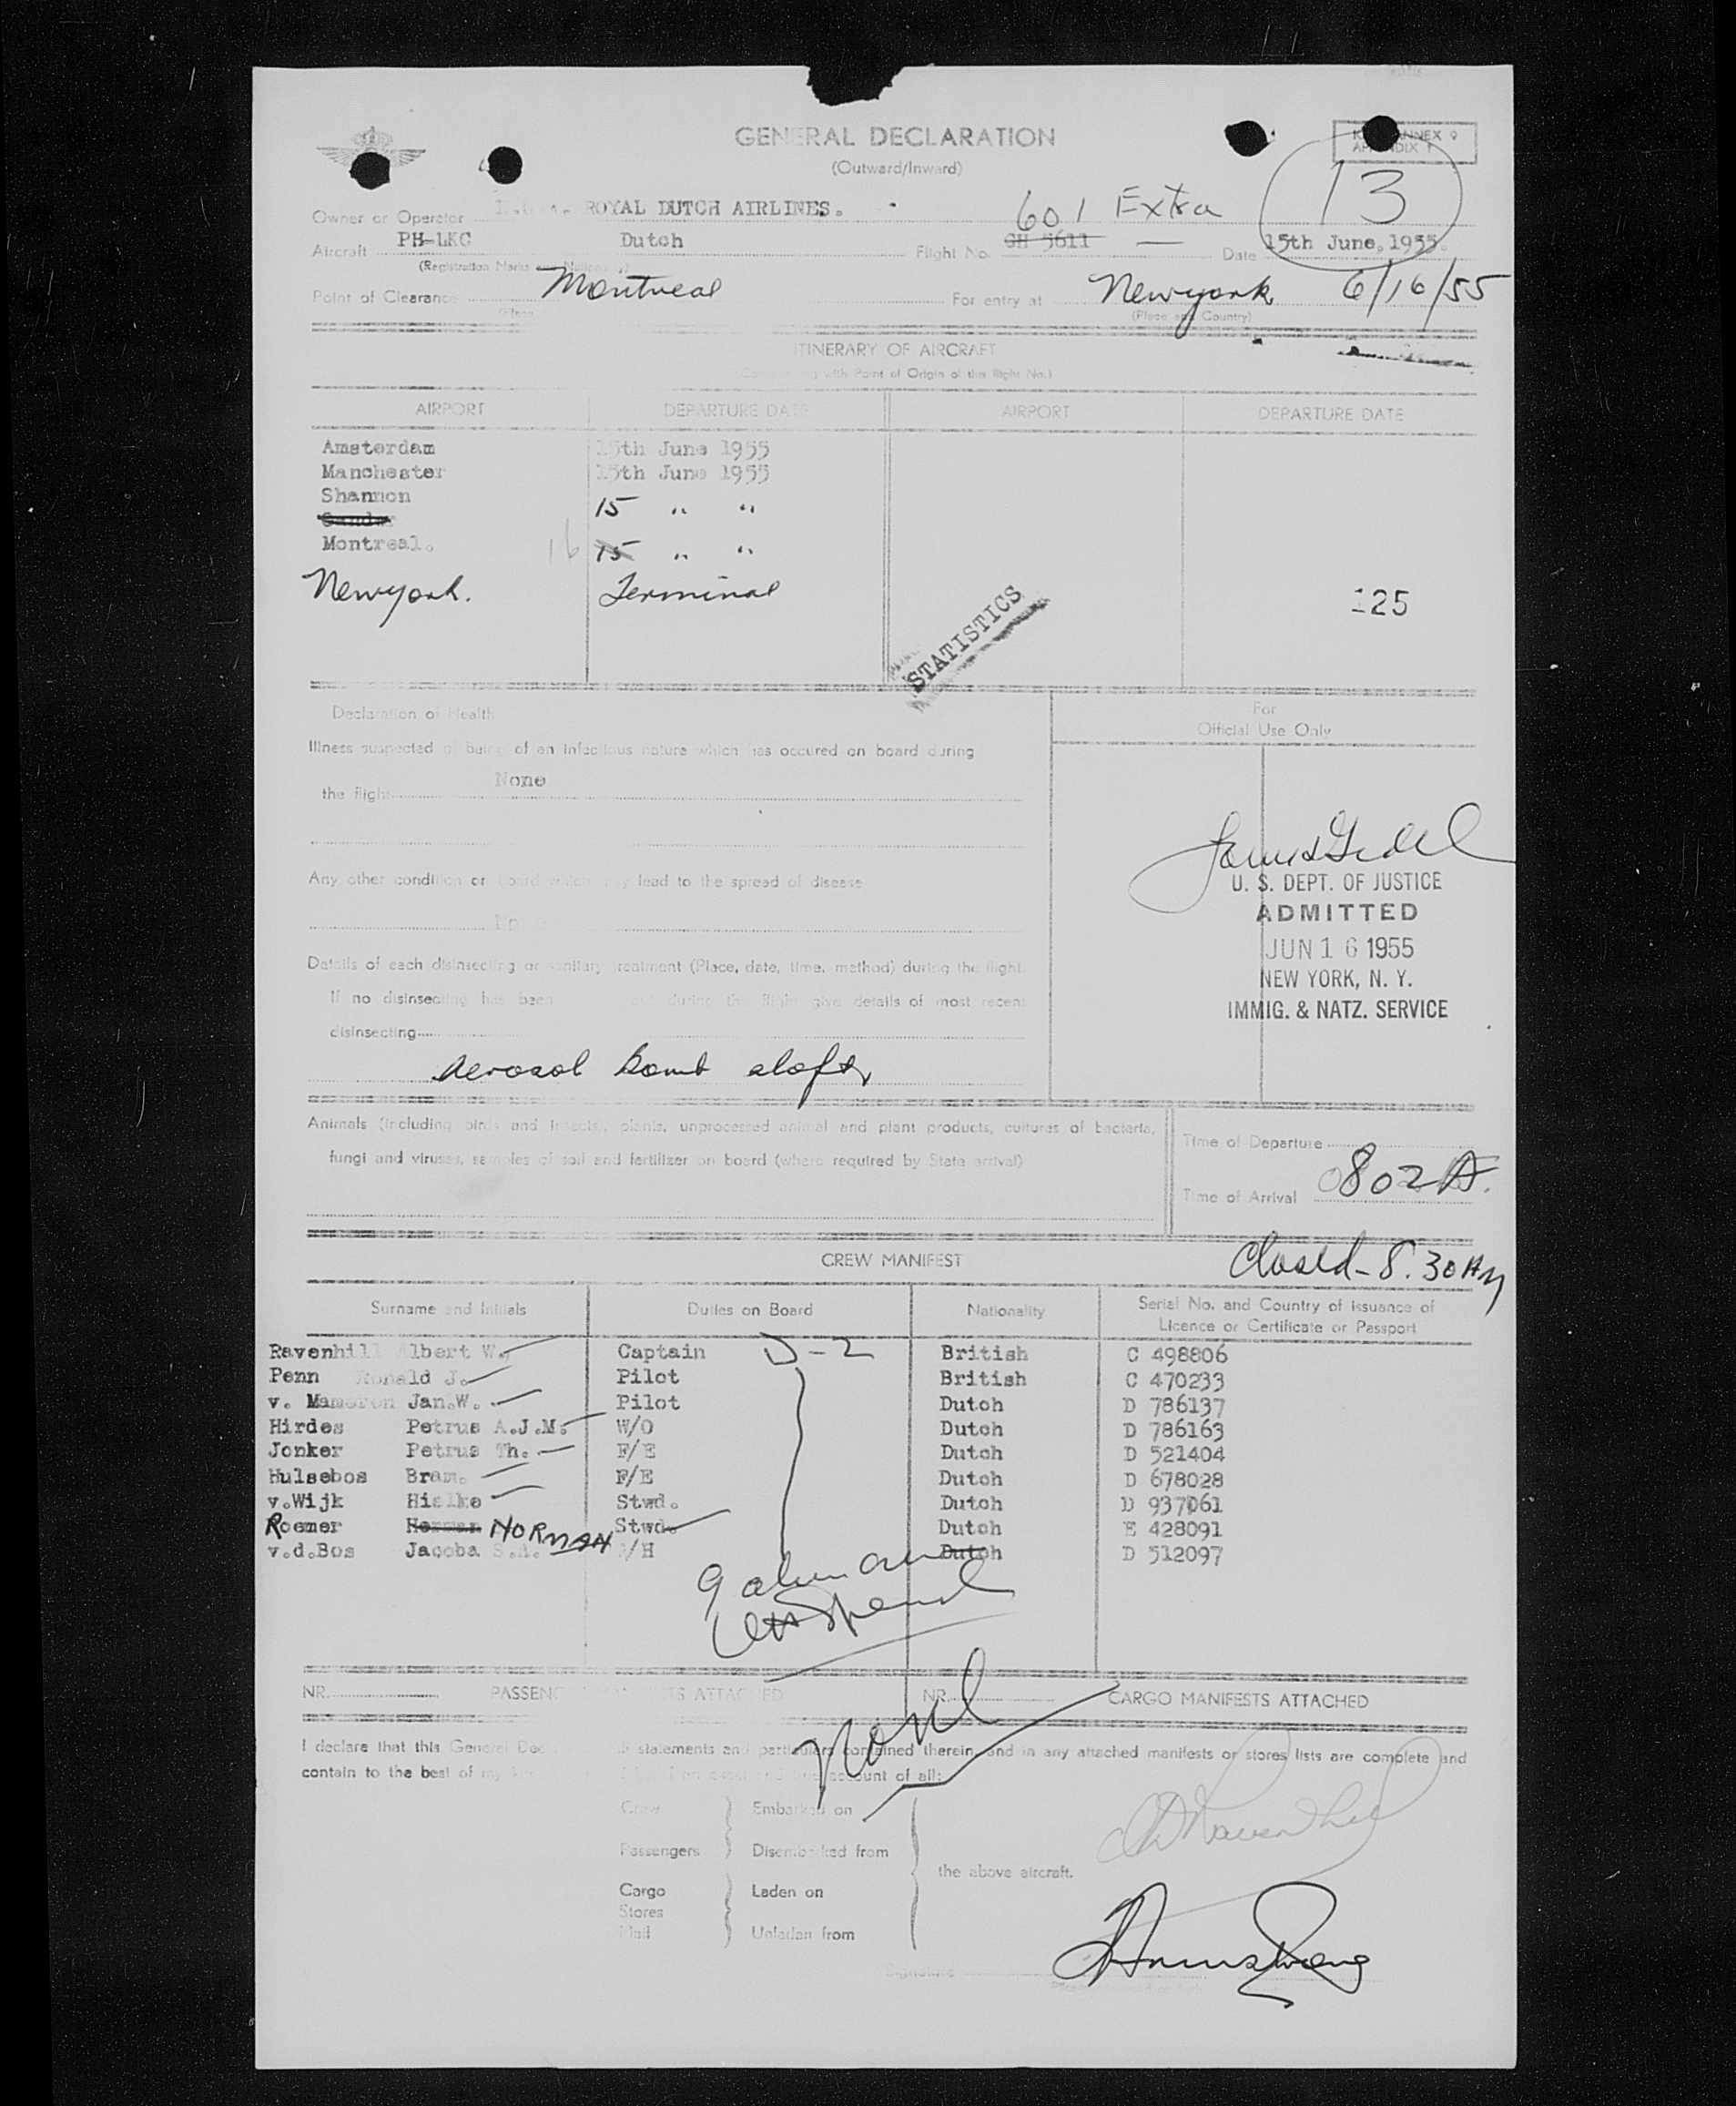 GENERAL DECLARATION
(Outward/Inward)
ANNEX 9
13
Owner or Operator ROYAL DUTCH AIRLINES.
601 Extra
Aircraft PH-LKC Dutch Flight No. GH 5611 — Date 15th June, 1955.
(Registration Marks
Point of Clearance Montreal For entry at Newyork 6/16/55
(Place and Country)
ITINERARY OF AIRCRAFT
with Point of Origin of the flight No.)
AIRPORT DEPARTURE DATE AIRPORT DEPARTURE DATE
Amsterdam 15th June 1955
Manchester 15th June 1955
Shannon 15 " "
Gander
Montreal. 16 15 " "
Newyork. Terminal
125
STATISTICS
Declaration of Health
For
Official Use Only
Illness suspected of being of an infectious nature which has occured on board during
the flight None
Any other condition on board which may lead to the spread of disease
Details of each disinsecting or sanitary treatment (Place, date, time, method) during the flight.
If no disinsecting has been during the flight give details of most recent
disinsecting
Aerosol bomb aloft
U. S. DEPT. OF JUSTICE
ADMITTED
JUN 16 1955
NEW YORK, N. Y.
IMMIG. & NATZ. SERVICE
Animals (including birds and insects), plants, unprocessed animal and plant products, cultures of bacteria,
fungi and viruses, samples of soil and fertilizer on board (where required by State arrival)
Time of Departure
Time of Arrival 0802 A.
CREW MANIFEST
Closed - 8.30 AM
Surname and Initials Duties on Board Nationality Serial No. and Country of Issuance of
Licence or Certificate or Passport
Ravenhill Albert W. Captain D-2 British C 498806
Penn Ronald J. Pilot British C 470233
v. Mameren Jan.W. Pilot Dutch D 786137
Hirdes Petrus A.J.M. W/O Dutch D 786163
Jonker Petrus Th. F/E Dutch D 521404
Hulsebos Bram. F/E Dutch D 678028
v.Wijk Hielke Stwd. Dutch D 937061
Roemer Herman NORMAN Stwd. Dutch E 428091
v.d.Bos Jacoba S.A. /H Dutch D 512097
NR. PASSENGER MANIFESTS ATTACHED NR. CARGO MANIFESTS ATTACHED
I declare that this General Dec statements and particulars contained therein, and in any attached manifests or stores lists are complete and
contain to the best of my account of all:
Crew Embarked on
Passengers Disembarked from
the above aircraft.
Cargo Laden on
Stores
Mail Unladen from
Signature